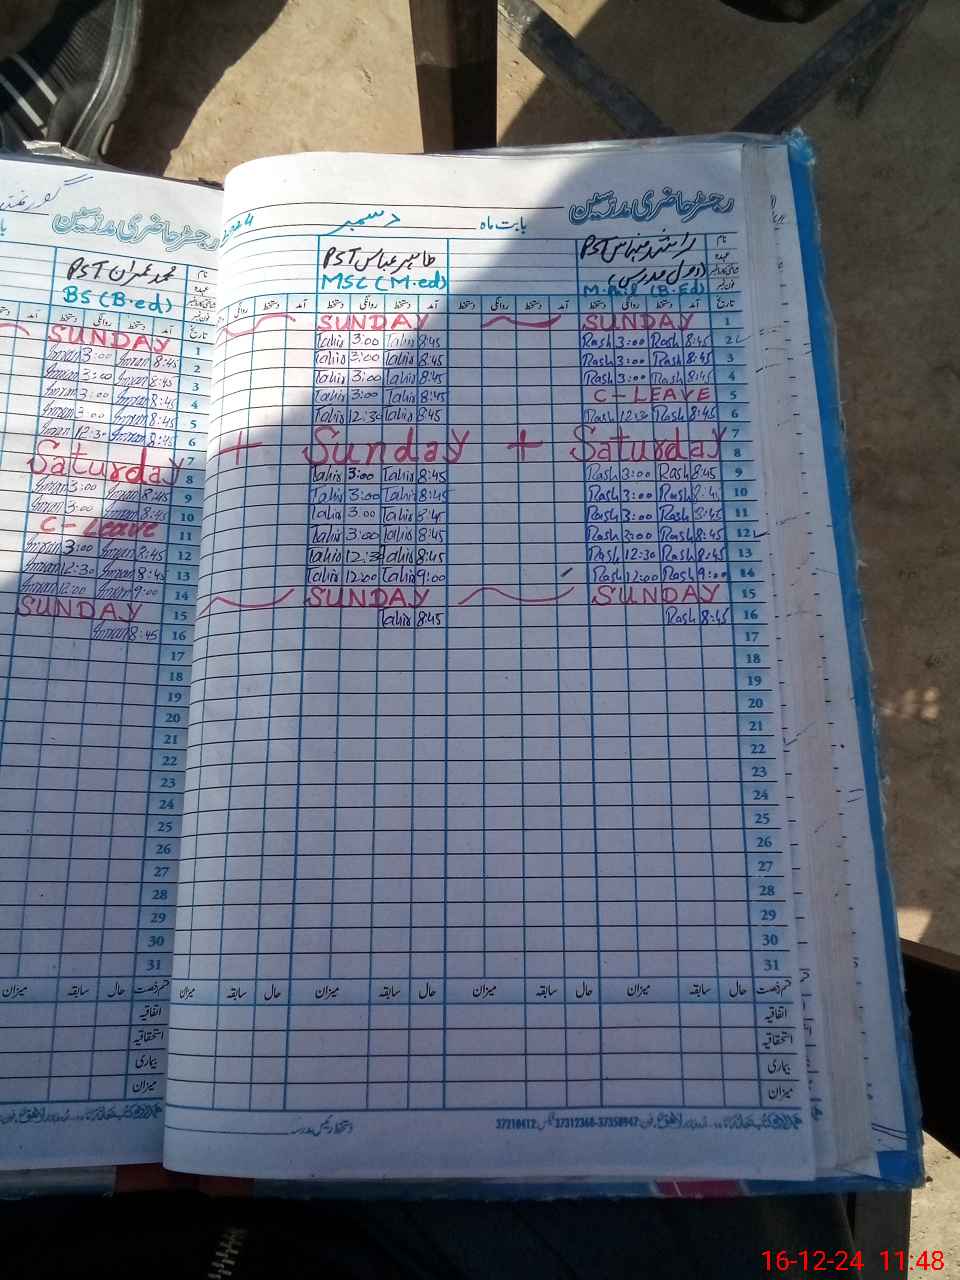 رجسٹر حاضری مدرسین
بابت ماہ دسمبر
نام
عہدہ
راشد عباس PST
M.A,S (B.Ed)
طاہر عباس PST
MSC (M.ed)
تاریخ آمد دستخط روانگی دستخط آمد دستخط روانگی دستخط آمد
1 SUNDAY SUNDAY
2 8:45 Rash 3:00 Rash 8:45 Tahir 3:00 Tahir
3 8:45 Rash 3:00 Rash 8:45 Tahir 3:00 Tahir
4 8:45 Rash 3:00 Rash 8:45 Tahir 3:00 Tahir
5 C-LEAVE 8:45 Tahir 3:00 Tahir
6 8:45 Rash 12:30 Rash 8:45 Tahir 12:30 Tahir
7
8 Saturday + Sunday +
9 8:45 Rash 3:00 Rash 8:45 Tahir 3:00 Tahir
10 8:45 Rash 3:00 Rash 8:45 Tahir 3:00 Tahir
11 8:45 Rash 3:00 Rash 8:45 Tahir 3:00 Tahir
12 8:45 Rash 3:00 Rash 8:45 Tahir 3:00 Tahir
13 8:45 Rash 12:30 Rash 8:45 Tahir 12:30 Tahir
14 9:00 Rash 12:00 Rash 9:00 Tahir 12:00 Tahir
15 SUNDAY SUNDAY
16 8:45 Rash 8:45 Tahir
17
18
19
20
21
22
23
24
25
26
27
28
29
30
31
قسم رخصت حال سابقہ میزان حال سابقہ میزان حال سابقہ میزان
اتفاقیہ
استحقاقیہ
بیماری
میزان
فون: 37350947-37312360 فیکس: 37210412
دستخط رئیس مدرسہ
رجسٹر حاضری مدرسین
نام
عہدہ
محمد عمران PST
BS (B.ed)
تاریخ آمد دستخط روانگی دستخط آمد
1 SUNDAY
2 8:45 Imran 3:00 Imran
3 8:45 Imran 3:00 Imran
4 8:45 Imran 3:00 Imran
5 8:45 Imran 3:00 Imran
6 8:45 Imran 12:30 Imran
7
8 Saturday
9 8:45 Imran 3:00 Imran
10 8:45 Imran 3:00 Imran
11 C-Leave
12 8:45 Imran 3:00 Imran
13 8:45 Imran 12:30 Imran
14 9:00 Imran 12:00 Imran
15 SUNDAY
16 8:45 Imran
17
18
19
20
21
22
23
24
25
26
27
28
29
30
31
قسم رخصت حال سابقہ میزان
اتفاقیہ
استحقاقیہ
بیماری
میزان
16-12-24 11:48